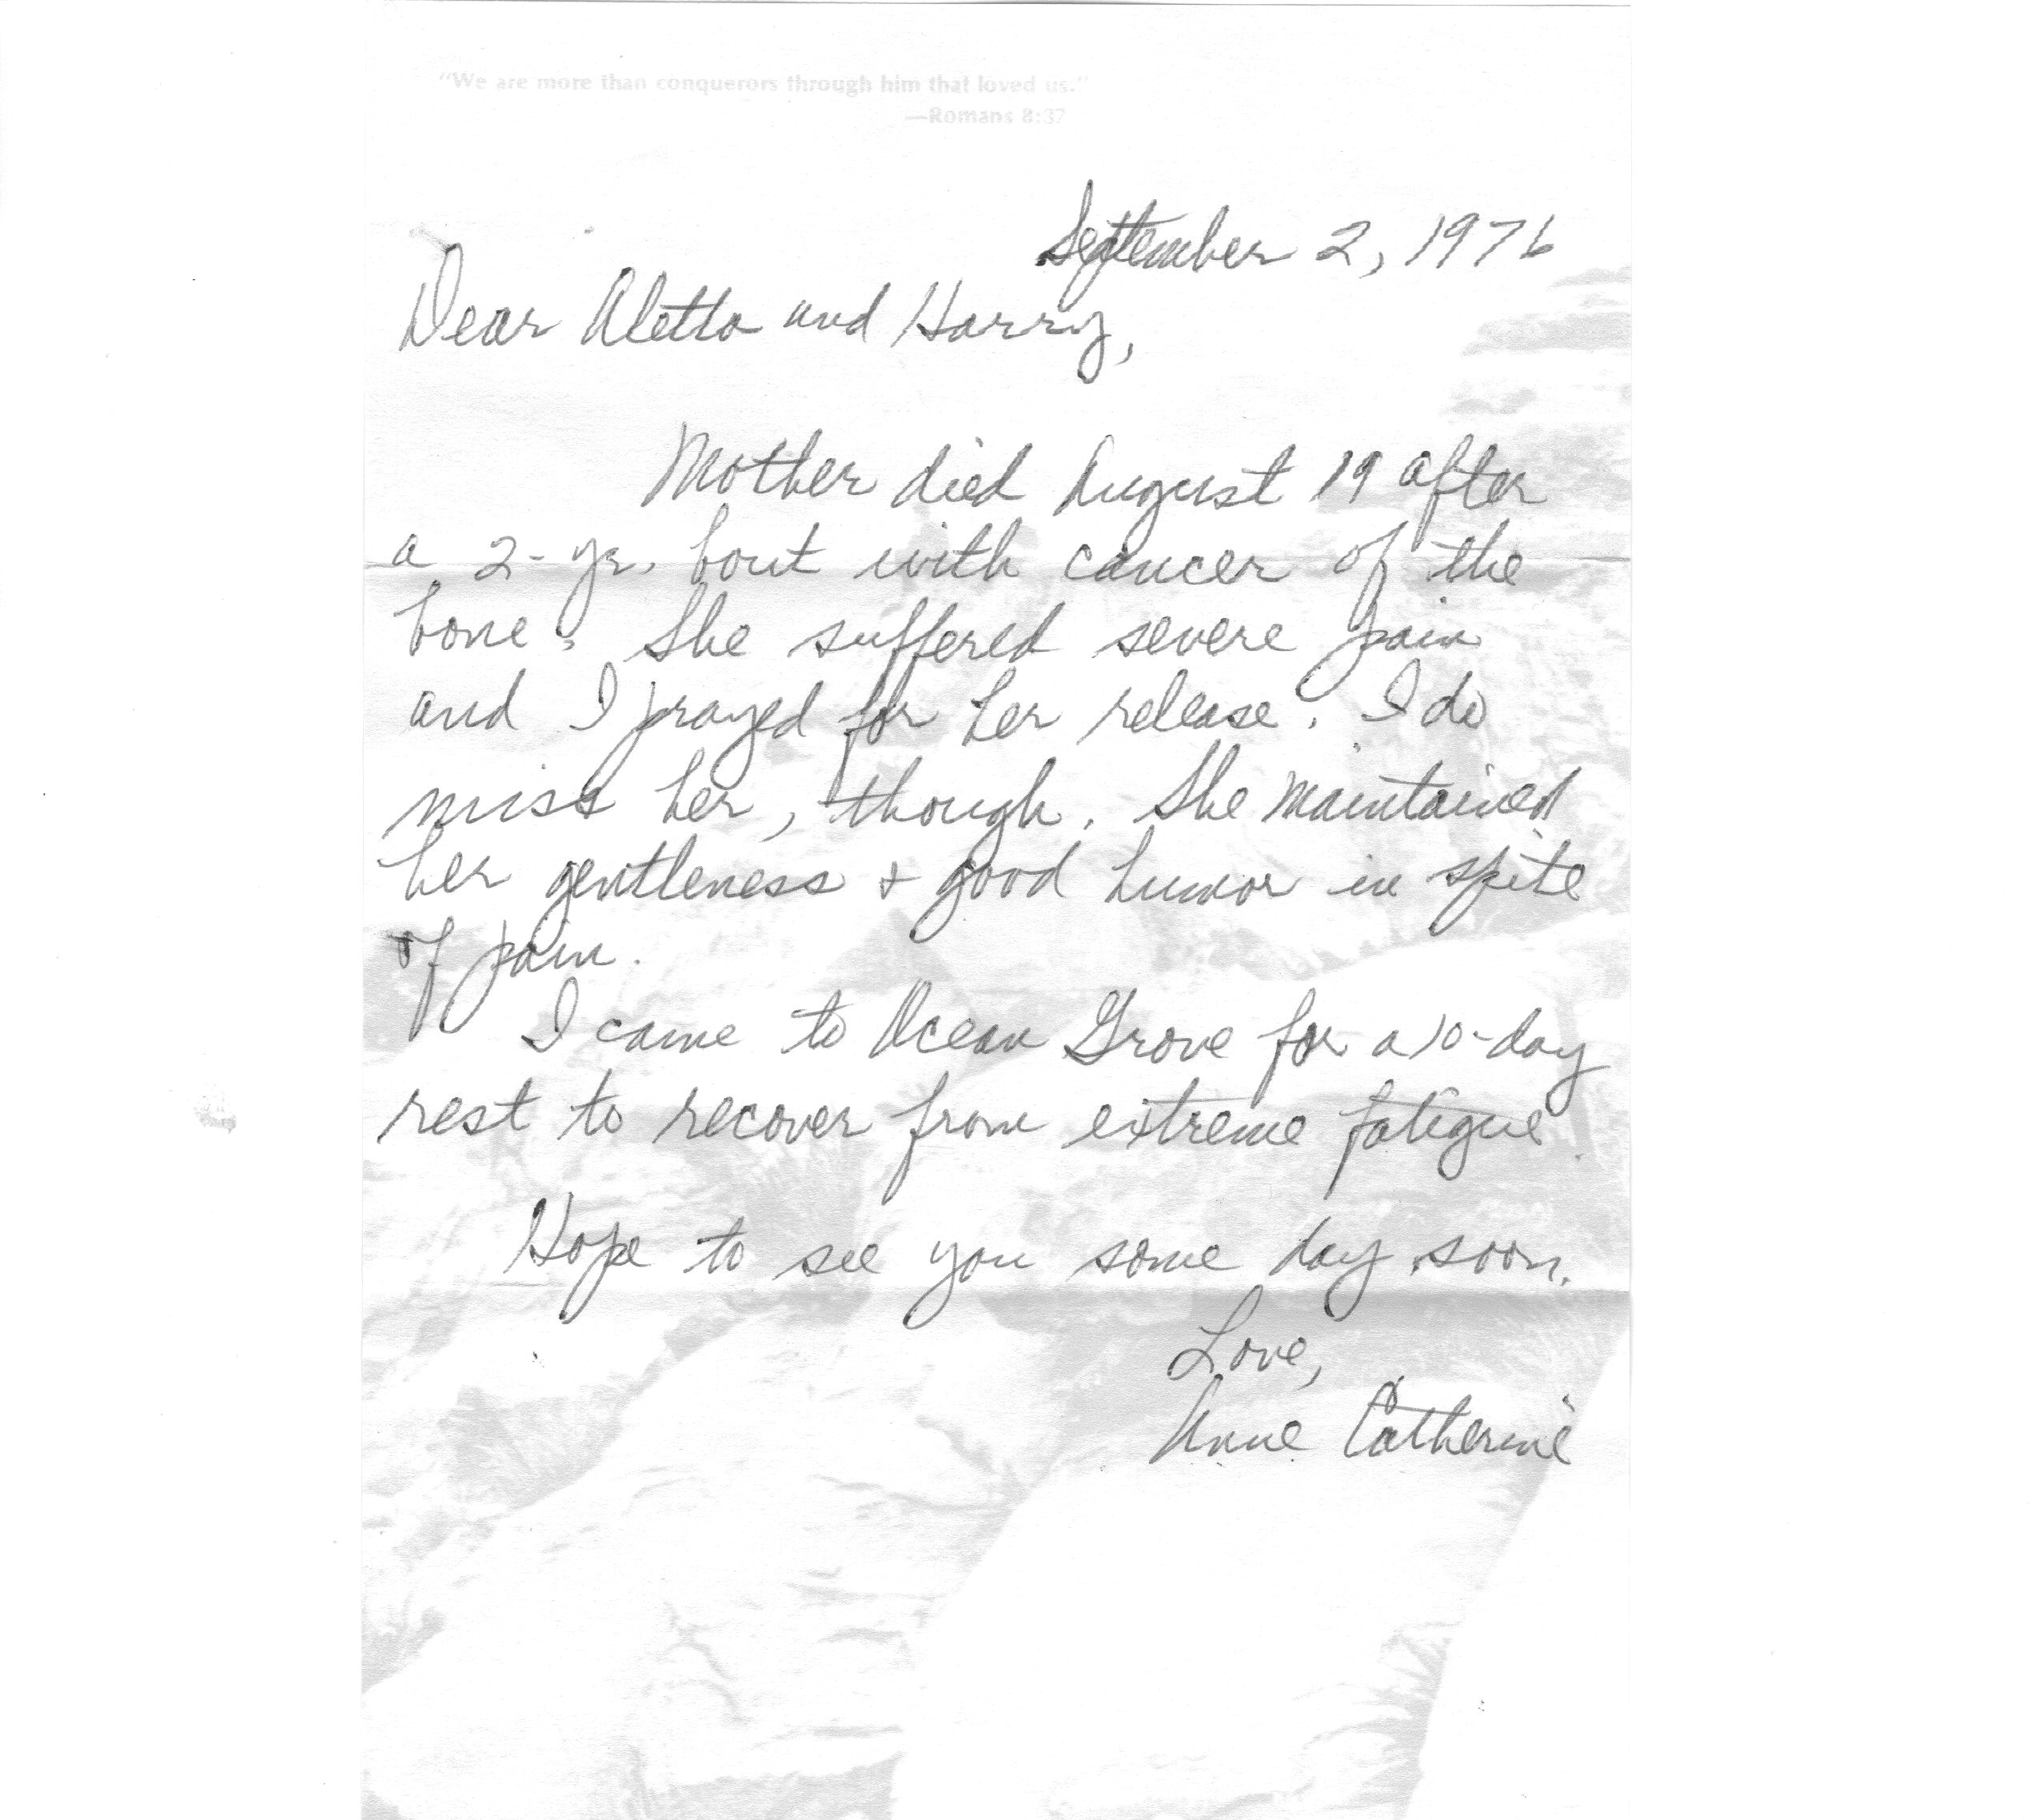 "We are more than conquerors through him that loved us."
—Romans 8:37
September 2, 1976
Dear Aletta and Harry,
Mother died August 19 after
a 2-yr. bout with cancer of the
bone. She suffered severe pain
and I prayed for her release. I do
miss her, though. She maintained
her gentleness + good humor in spite
of pain.
I came to Ocean Grove for a 10-day
rest to recover from extreme fatigue.
Hope to see you some day soon.
Love,
Anne Catherine